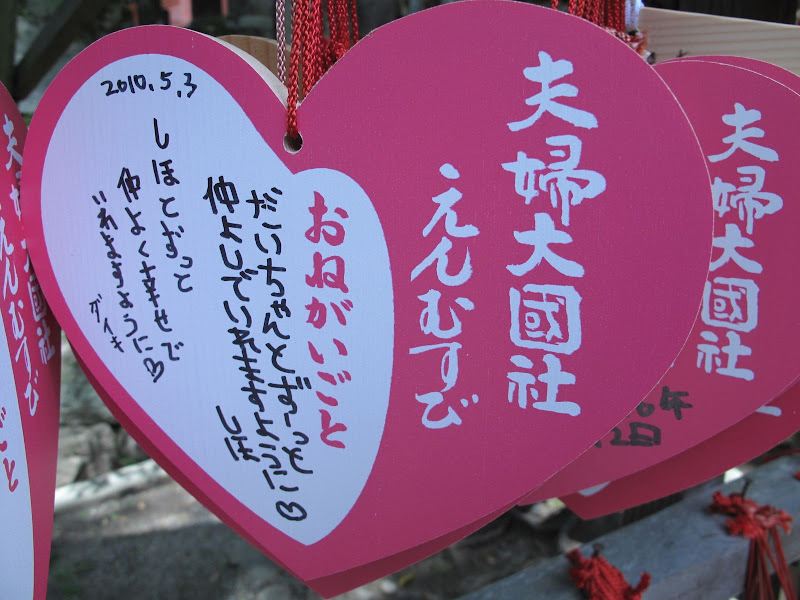 夫婦大國社
えんむすび
おねがいごと
だいちゃんとずーっと
仲よしでいれますように♡
しほ
2010.5.3
しほとずっと
仲よく幸せで
いれますように♡
ダイキ
夫婦大國社
年
2日
夫
えんむすび
國社
ごと